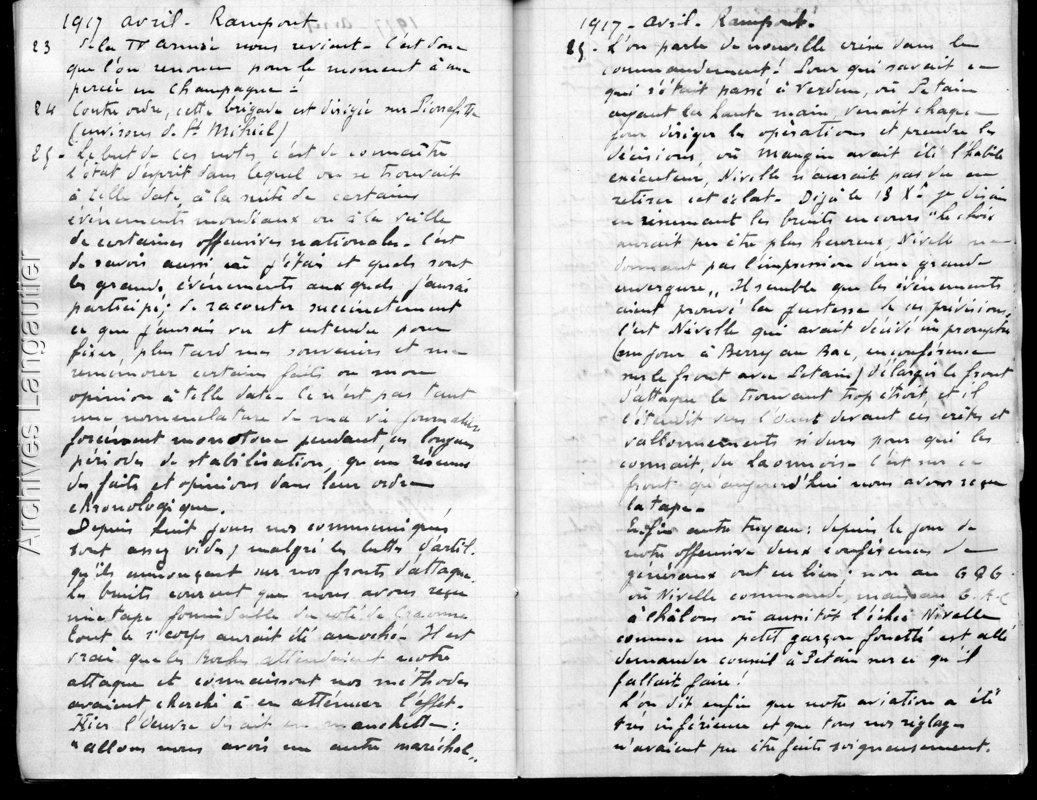 1917 avril - Rampont
23 de la IVe armée nous revient - C'est donc
que l'on renonce pour le moment à une
percée en Champagne !
24 Contre ordre, cette brigade est dirigée sur Pierrefitte
(environs de St Mihiel)
25 - Le but de ces notes, c'est de connaître
l'état d'esprit dans lequel on se trouvait
à telle date, à la suite de certains
événements mondiaux ou à la veille
de certaines offensives nationales - C'est
de savoir aussi où j'étais et quels sont
les grands événements auxquels j'aurai
participé; de raconter succinctement
ce que j'aurais vu et entendu pour
fixer, plus tard mes souvenirs et me
remémorer certains faits ou mon
opinion à telle date - Ce n'est pas tant
une nomenclature de ma vie journalière
forcément monotone pendant ces longues
périodes de stabilisation, qu'un résumé
des faits et opinions dans leur ordre
chronologique.
Depuis huit jours nos communiqués
sont assez vides, malgré les luttes d'artil.
qu'ils annonçent sur nos fronts d'attaque.
Les bruits courent que nous avons reçu
une tape formidable du coté de Craonne
tout le 1er corps aurait été amoché - Il est
vrai que les Boches attendaient notre
attaque et connaissant nos méthodes
avaient cherché à en atténuer l'effet -
Hier l'Oeuvre disait en manchette :
"allons nous avoir un autre maréchal„
1917 - avril - Rampont -
25 - L'on parle de nouvelle crise dans le
commandement ! Pour qui savait ce
qui s'était passé à Verdun, où Petain
ayant la haute main, venait chaque
jour diriger les opérations et prendre les
décisions, où Mangin avait été l'habile
exécuteur, Nivelle n'aurait pas du en
retirer cet éclat - Déjà le 18 Xe je disais
en résumant les bruits en cours "le choix
aurait pu être plus heureux, Nivelle ne
donnant pas l'impression d'une grande
envergure„ Il semble que les événements
aient prouvé la justesse de ces prévisions,
C'est Nivelle qui avait décidé
(un jour à Berry au Bac, en conférence
sur le front avec Petain) d'élargir le front
d'attaque le trouvant trop étroit, et il
l'étendit vers l'Ouest devant ces crêtes et
vallonnements si durs pour qui les
connait, du Laonnois - C'est sur ce
front qu'aujourd'hui nous avons reçu
la tape -
Enfin autre tuyau : depuis le jour de
notre offensive deux conférences de
généraux ont eu lieu : non au G Q G.
où Nivelle commande, mais au G.A.C
à Châlons où aussitôt l'échec Nivelle
comme un petit garçon fouetté est allé
demander conseil à Petain sur ce qu'il
fallait faire !
L'on dit enfin que notre aviation a été
très inférieure et que tous nos réglages
n'avaient pu être faits soigneusement.
Archives Langautier